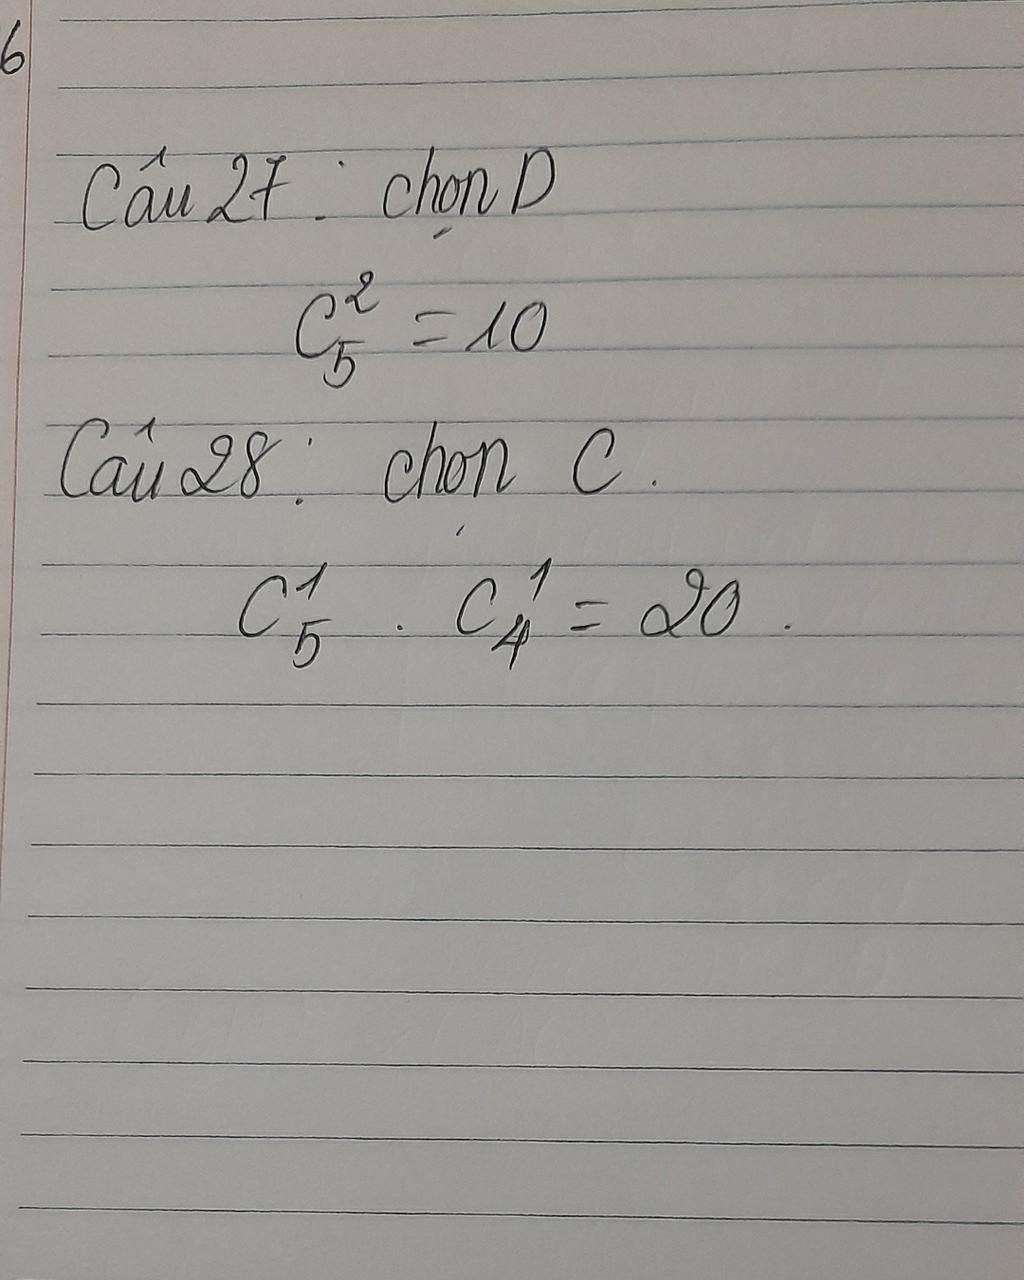 6
Câu 27 : chọn D
C₅² = 10
Câu 28 : chọn C .
C₅¹ . C₄¹ = 20 .